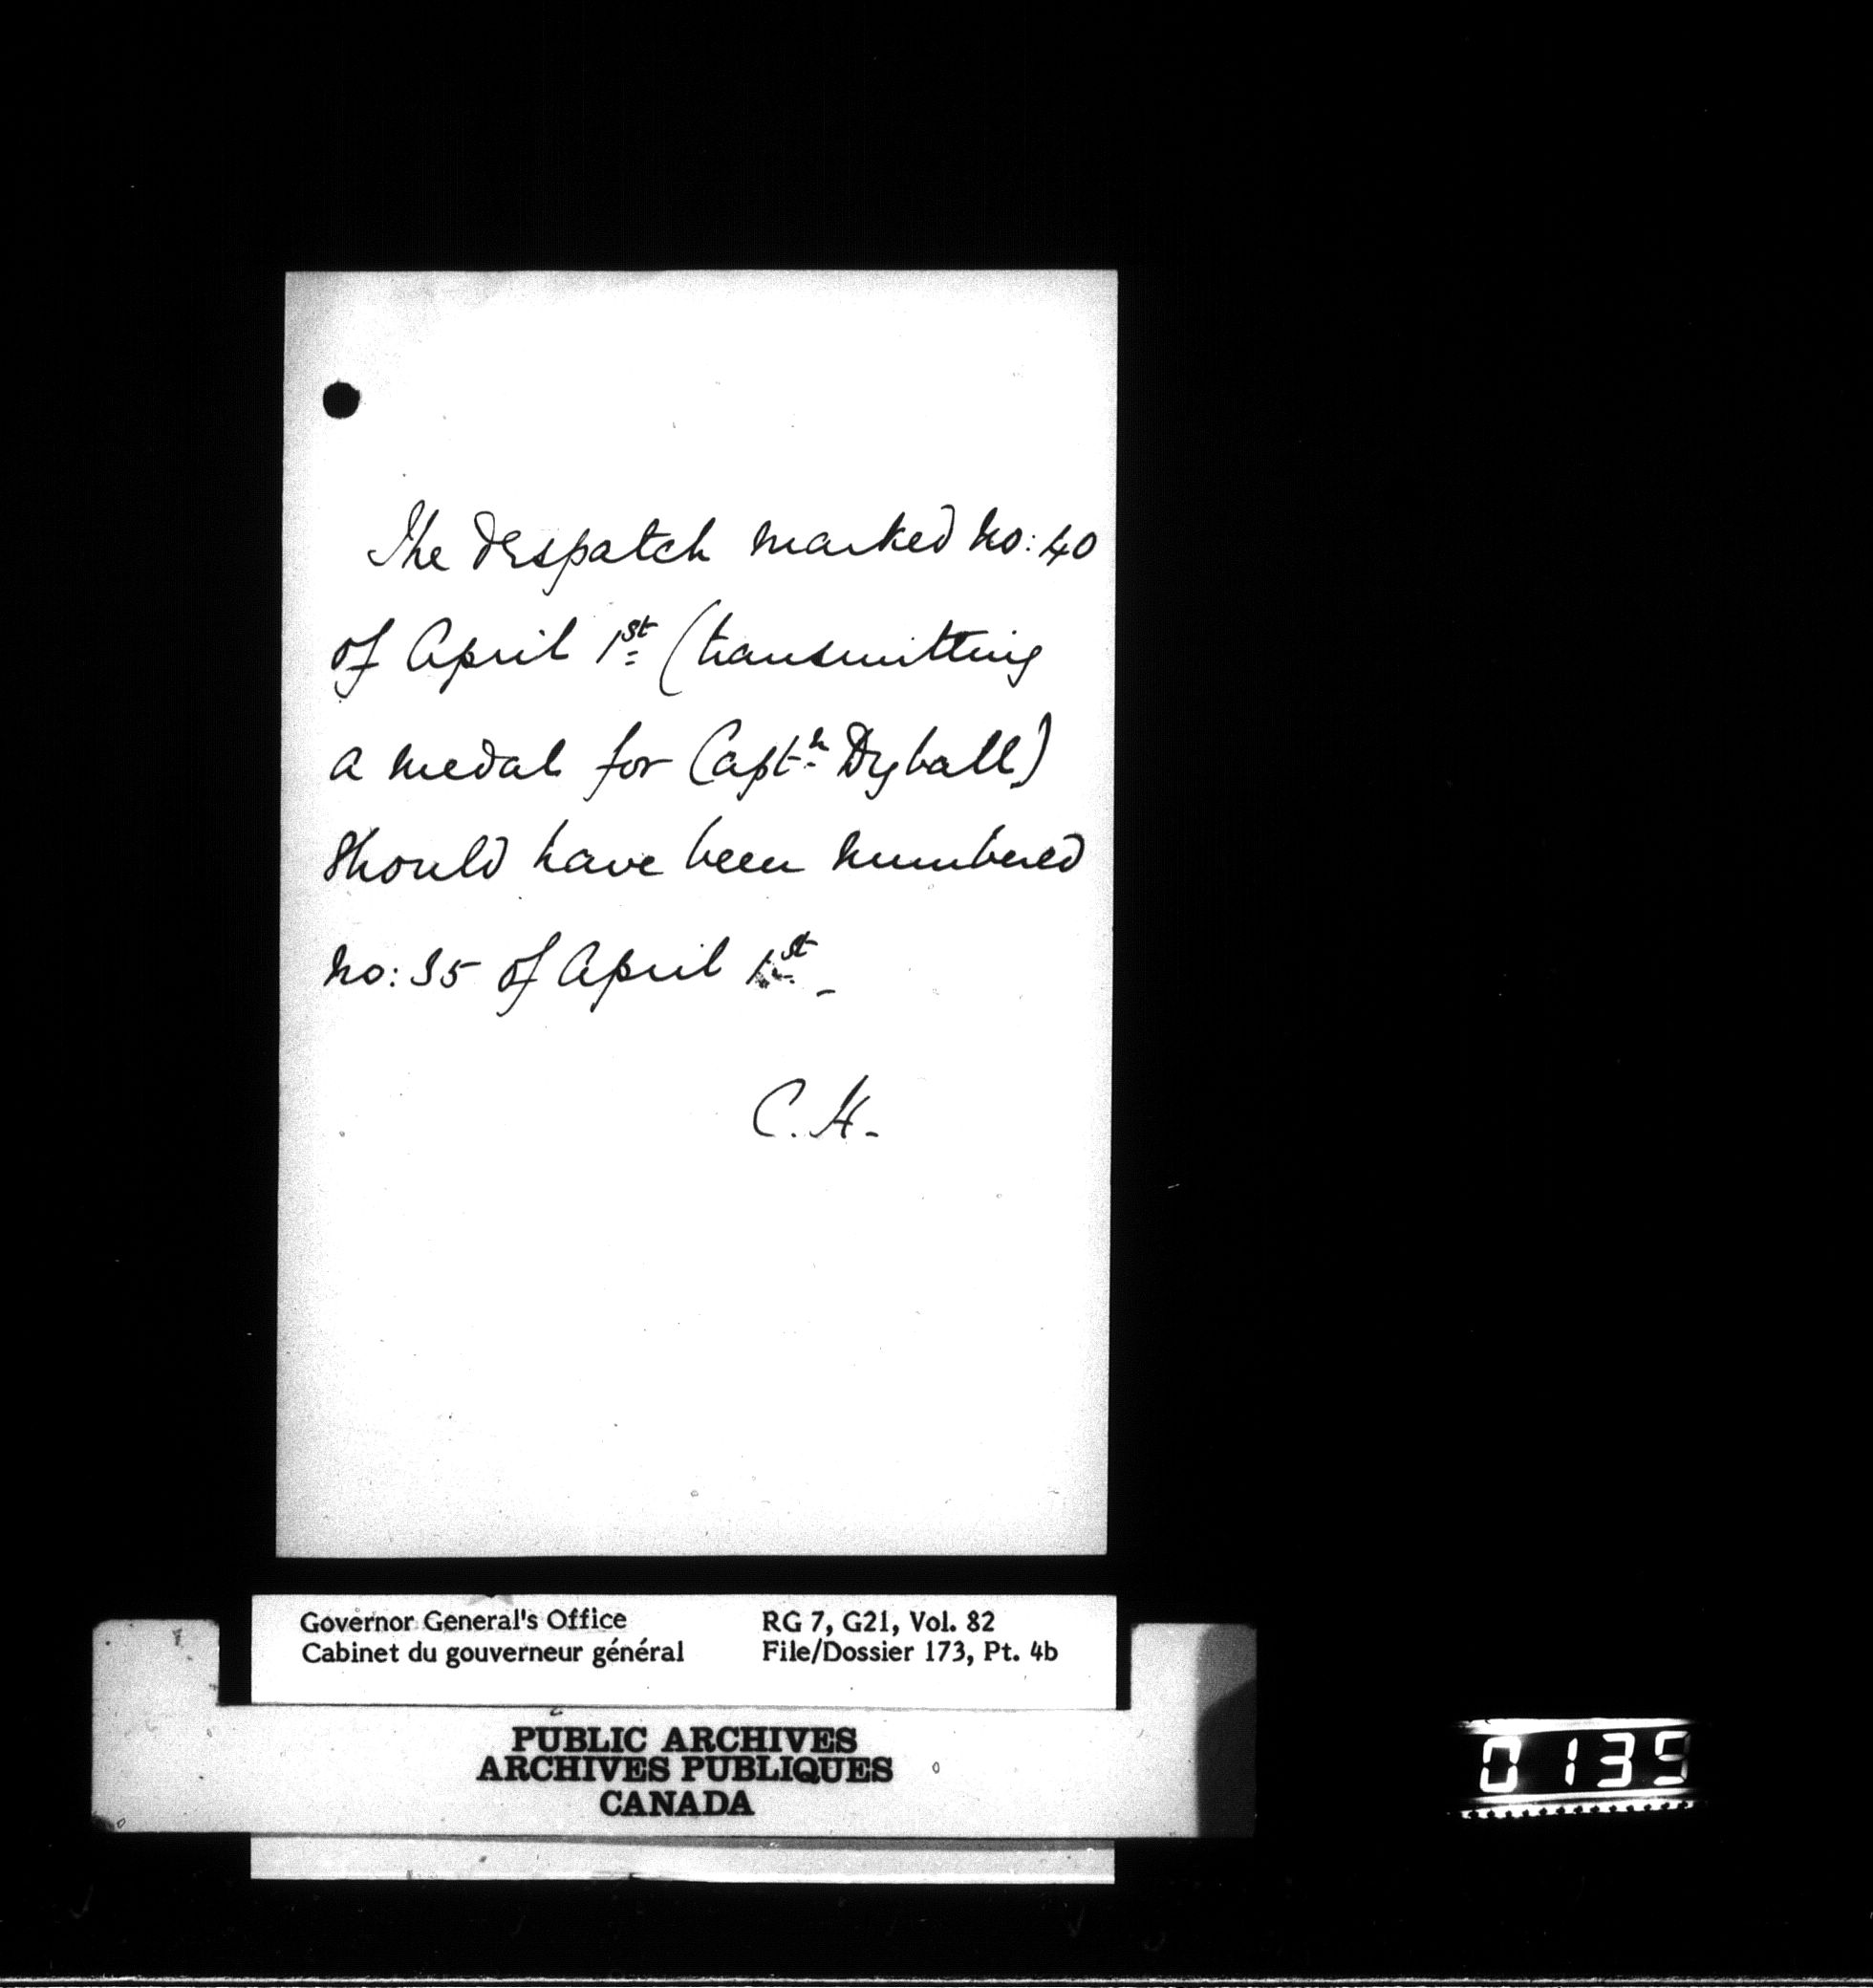 The despatch marked No: 40
of April 1st (transmitting
a medal for Captn Dyball)
should have been numbered
No: 35 of April 1st_
C.H.
Governor General's Office
Cabinet du gouverneur général
RG 7, G21, Vol. 82
File/Dossier 173, Pt. 4b
PUBLIC ARCHIVES
ARCHIVES PUBLIQUES
CANADA
0135